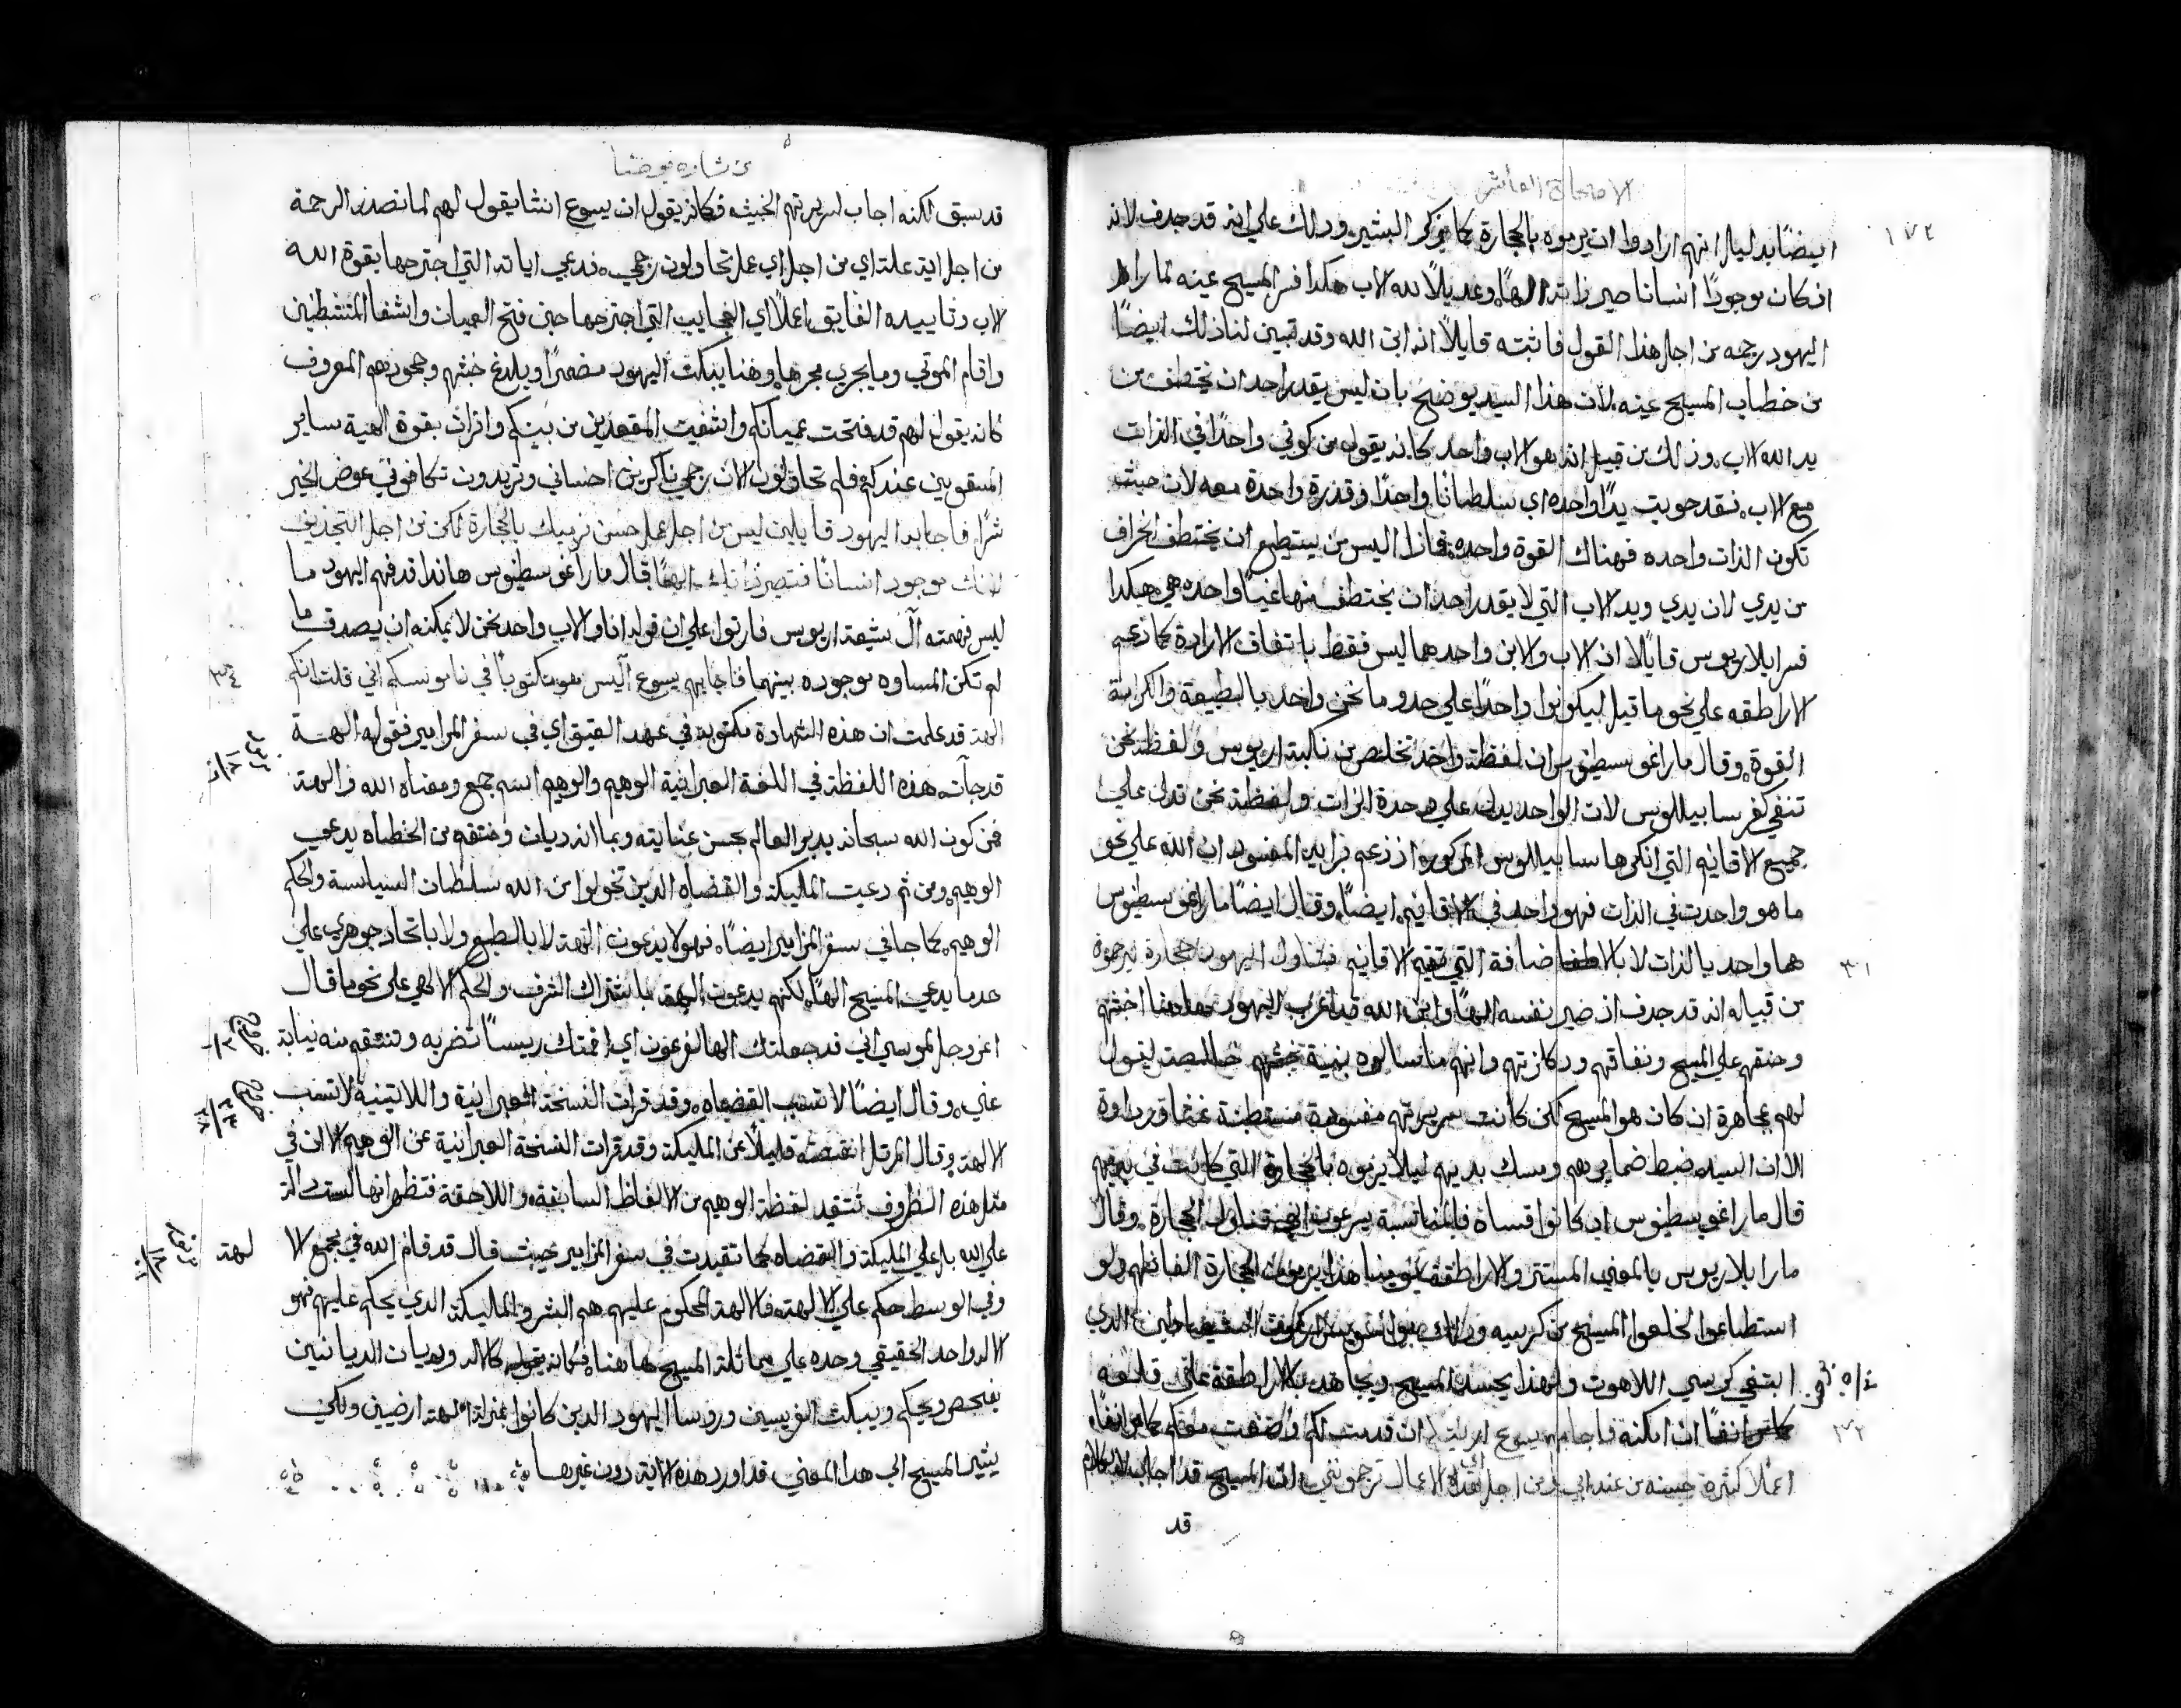 الاصحاح العاشر
١٧٢
ايضًا بدليل انهم ارادوا ان يرموه بالحجارة كما يذكر البشير وذلك علي انه قد جدف لانه
اذ كان موجودًا انسانا صير ذاته الهًا وعديلًا لله الاب هكذا فسر المسيح عينه لما راي
اليهود رجمه من اجل هذا القول فاثبته قايلًا انه ابن الله وقد تبين لنا ذلك ايضًا
من خطاب المسيح عينه لان هذا السيد يوضح بان ليس يقدر احد ان يختطف من
يد الله الاب وذلك من قبيل انه هو الاب واحد كانه يقول من كوني واحدًا في الذات
مع الاب فقد حويت يدًا واحده اي سلطانًا واحدًا وقدرة واحدة معه لان حيث
تكون الذات واحده فهناك القوة واحده فاذا اليس من يستطيع ان يختطف الخراف
من يدي لان يدي ويد الاب التي لا يقدر احد ان يختطف منها غيبًا واحده هي هكذا
فسر ايلاريوس قايلًا ان الاب والابن واحد هما ليس فقط باتفاق الارادة كما زعم
الاراطقه علي نحو ما قيل ليكونوا واحدًا علي حدو ما نحن واحد بالطبيعة والكرامة
القوة وقال مار اغوسطينوس ان لفظة واحد تخلص من نكبة اريوس ولفظة نحن
تنفي كفر سابيلليوس لان الواحد يدل علي وحدة الذات ولفظة نحن تدل علي
جميع الاقانيم التي انكرها سابيلليوس المذكور اذ زعم برايه المفسود ان الله علي نحو
ما هو واحد في الذات فهو واحد في الاقانيم ايضًا وقال ايضًا مار اغوسطينوس
هما واحد بالذات لا بالاضافة التي تقيم الاقانيم فتناول اليهود حجارة ليرجموه
٣١
من قبيل انه قد جدف اذ صير نفسه الهًا وابن الله قد اعرب اليهود هاهنا خبثهم
وحنقهم علي المسيح ونفاقهم وانهم ما سالوه بنية خالصة ليقول
لهم مجاهرة ان كان هو المسيح لكن كانت سريرتهم مفسودة مستطبنة غشا
الا ان السيد ضبط ضمايرهم ومسك يديهم ليلا يرموه بالحجارة التي كانت في يديهم
قال مار اغوسطينوس اذ كانوا قساه فالمناسبة يسرعون الي تناول الحجارة وقال
مار ايلاريوس بالمعني المستتر والاراطقة يرمون الحجارة الفاظهم ولو
استطاعوا لخلعوا المسيح من كرسيه
ابتغي كرسي اللاهوت ولهذا يحسد المسيح ويجاهد بالاراطقة علي قلعه
ان امكنه فاجابهم يسوع اريتكم
٣٢
اعمالا كثيرة حسنه من عند ابي فمن اجل اي الاعمال ترجموني ان المسيح قد اجاب
قد
بشارة يوحنا
قد سبق لكنه اجاب لسريرتهم الخبيثه فكانه يقول ان يسوع انشا يقول لهم لما نصدت الرجمة
من اجل اية علة اي من اجل اي عمل تحاولون رجمي فدعي اياته التي اجترحها بقوة الله
الاب وتاييده الفايق اعمالًا اي العجايب التي اجترحها حين فتح العميان واشفا المتشيطنين
واقام الموتي وما يجري مجرها وهنا يبكت اليهود مضمرًا ويلدغ خبثهم وجحودهم المعروف
كانه يقول لهم قد فتحت عميانكم واشفيت المقعدين من بينكم وابرات بقوة الهية ساير
المسقومين عندكم فلم تحاولون الان رجمي ناكرين احساني وتريدون تكافوني عوض الخير
شرًا فاجابه اليهود قايلين ليس من اجل عمل حسن نرميك بالحجارة لكن من اجل التجديف
لانك موجود انسانًا فتصير ذاتك الهًا قال مار اغوسطينوس هاندا قد فهم اليهود ما
ليس فهمته آل شيعة اريوس فارتوا علي ان قوله انا والاب واحد نحن لا يمكنه ان يصدق ما
لم تكن المساوه موجوده بينهما فاجابهم يسوع اليس هو مكتوبًا في ناموسكم اني قلت انكم
٣٤
الهة قد علمت ان هذه الشهادة مكتوبة في عهد العتيق اي في سفر المزامير فقوله الهة
قد جآت هذه اللفظة في اللغة العبرانية الوهيم والوهيم اسم جمع ومعناه الله والهة
فمن كون الله سبحانه يدبر العالم بحسن عنايته وبما انه ديان ومنتقم من الخطاه يدعي
الوهيم ومن ثم دعيت المليكة والقضاه الدين تخولوا من الله سلطان السياسة والحكم
الوهيم كما جا في سفر المزامير ايضًا فهولا يدعون الهة لا بالطبع ولا باتحاد جوهري علي
حد ما يدعي المسيح الهًا لكنهم يدعون الهة باشتراك الشرف والحكم الالهي علي نحو ما قال
اعز وجل لموسي اني قد جعلتك الها لفرعون اي اقمتك ريسًا تضربه وتنتقم منه نيابة
خروج
عني وقال ايضًا لا تسب القضاه وقد قرات النسخة العبرانية واللاتينية لا تسب
خروج
٢٢
٢٨
الالهة وقال المرتل انقصته قليلًا عن المليكة وقد قرات النسخة العبرانية عن الوهيم الا ان في
مثل هذه الظروف تتقيد لفظة الوهيم من الالفاظ السابقة واللاحقة فتظهر انها ليست دالة
علي الله بل علي المليكة والقضاه كما تقيدت في سفر المزامير حيث قال قد قام الله في مجمع الا
لهة
مزمور
وفي الوسط حكم علي الالهة فالالهة المحكوم عليهم هم البشر والمليكة الدي يحكم عليهم فهو
الاله واحد الحقيقي وحده علي مماثلة المسيح هاهنا فكانه يقول كالاله وديان الديانين
يفحص ويحكم ويبكت الفريسين وروسا اليهود الدين كانوا بمنزلة الهة ارضيين ولكي
يشير المسيح الي هدا المعني قد اورد هذه الاية دون غيرها